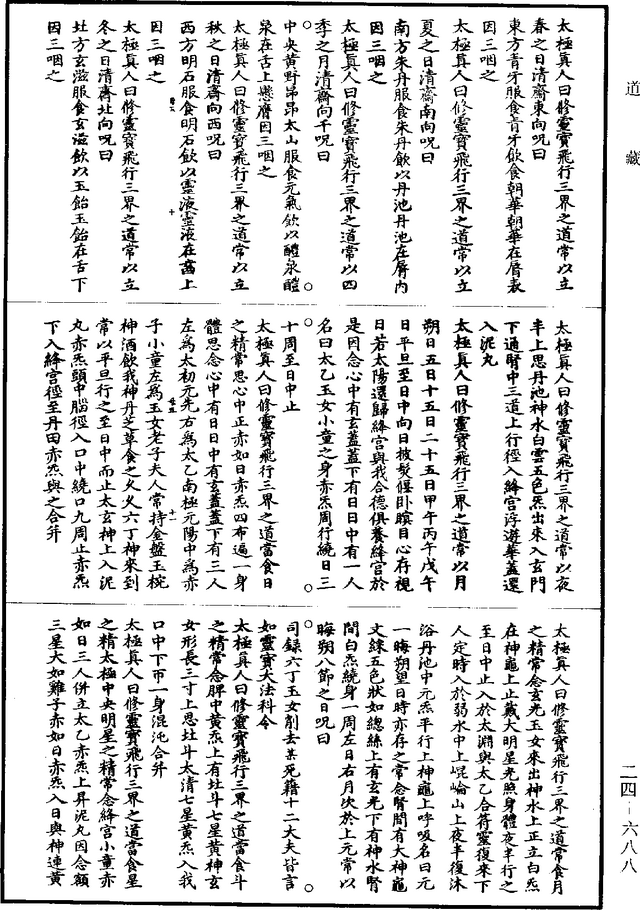 道藏
太極真人曰修靈寶飛行三界之道常以立
春之日清齋東向呪曰
東方青牙服食青牙飲食朝華朝華在脣表
因三咽之
太極真人曰修靈寶飛行三界之道常以立
夏之日清齋南向呪曰
南方朱丹服食朱丹飲以丹池丹池在脣內
因三咽之
太極真人曰修靈寶飛行三界之道常以四
季之月清齋向干呪曰
中央黃野昂昂太山服食元氣飲以醴泉醴
泉在舌上懸膺因三咽之
太極真人曰修靈寶飛行三界之道常以立
秋之日清齋向西呪曰
西方明石服食明石飲以靈液靈液在齒上
因三咽之
太極真人曰修靈寶飛行三界之道常以立
冬之日清齋北向呪曰
北方玄滋服食玄滋飲以玉飴玉飴在舌下
因三咽之
太極真人曰修靈寶飛行三界之道常以夜
半上思丹池神水白雲五色炁出來入玄門
下過腎中三道上行徑入絳宮浮遊華蓋還
入泥丸
太極真人曰修靈寶飛行三界之道常以月
朔日五日十五日二十五日甲午丙午戊午
日平旦至日中向日被髮偃卧瞑目心存視
日若太陽還歸絳宮與我合德俱養絳宮於
是因念心中有玄蓋蓋下有日日中有一人
名曰太乙玉女小童之身赤炁周行繞日三
十周至日中止
太極真人曰修靈寶飛行三界之道當食日
之精常思心中正赤如日赤炁四布遍一身
體思念心中有日日中有玄蓋蓋下有三人
左為太初元先右為太乙南極元陽中為赤
子小童左為玉女老子夫人常持金盤玉椀
神酒飲我神丹芝草食之久久六丁神來到
常以平旦行之至日中而止太玄神上入泥
丸赤炁頭中腦徑入口中繞口九周止赤炁
下入絳宮徑至丹田赤炁與之合并
太極真人曰修靈寶飛行三界之道常食月
之精常念玄光玉女來出神水上正立白炁
在神龜上止戴大明星光照身體夜半行之
至日中止入於太淵與太乙合符靈復來下
人定時入於弱水中上崐崘山上夜半復沐
浴丹池中元炁平行上神龜上呼吸名曰元
一晦朔望日時亦存之常念腎間有大神龜
文綵五色狀如總絲上有玄光下有神水腎
間白炁繞身一周左日右月次於上元常以
晦朔八節之日呪曰
司錄六丁玉女削去某死籍十二大夫皆言
如靈寶大法科令
太極真人曰修靈寶飛行三界之道當食斗
之精常念脾中黃炁上有北斗七星黃神玄
女形長三寸上思北斗太清七星黃炁入我
口中下帀一身混沌合并
太極真人曰修靈寶飛行三界之道當食星
之精太極中央明星之精常念絳宮小童赤
如日三人併立太乙赤炁上昇泥丸因念額
三星大如雞子赤如日赤炁入日與神連黃
二四－六八八